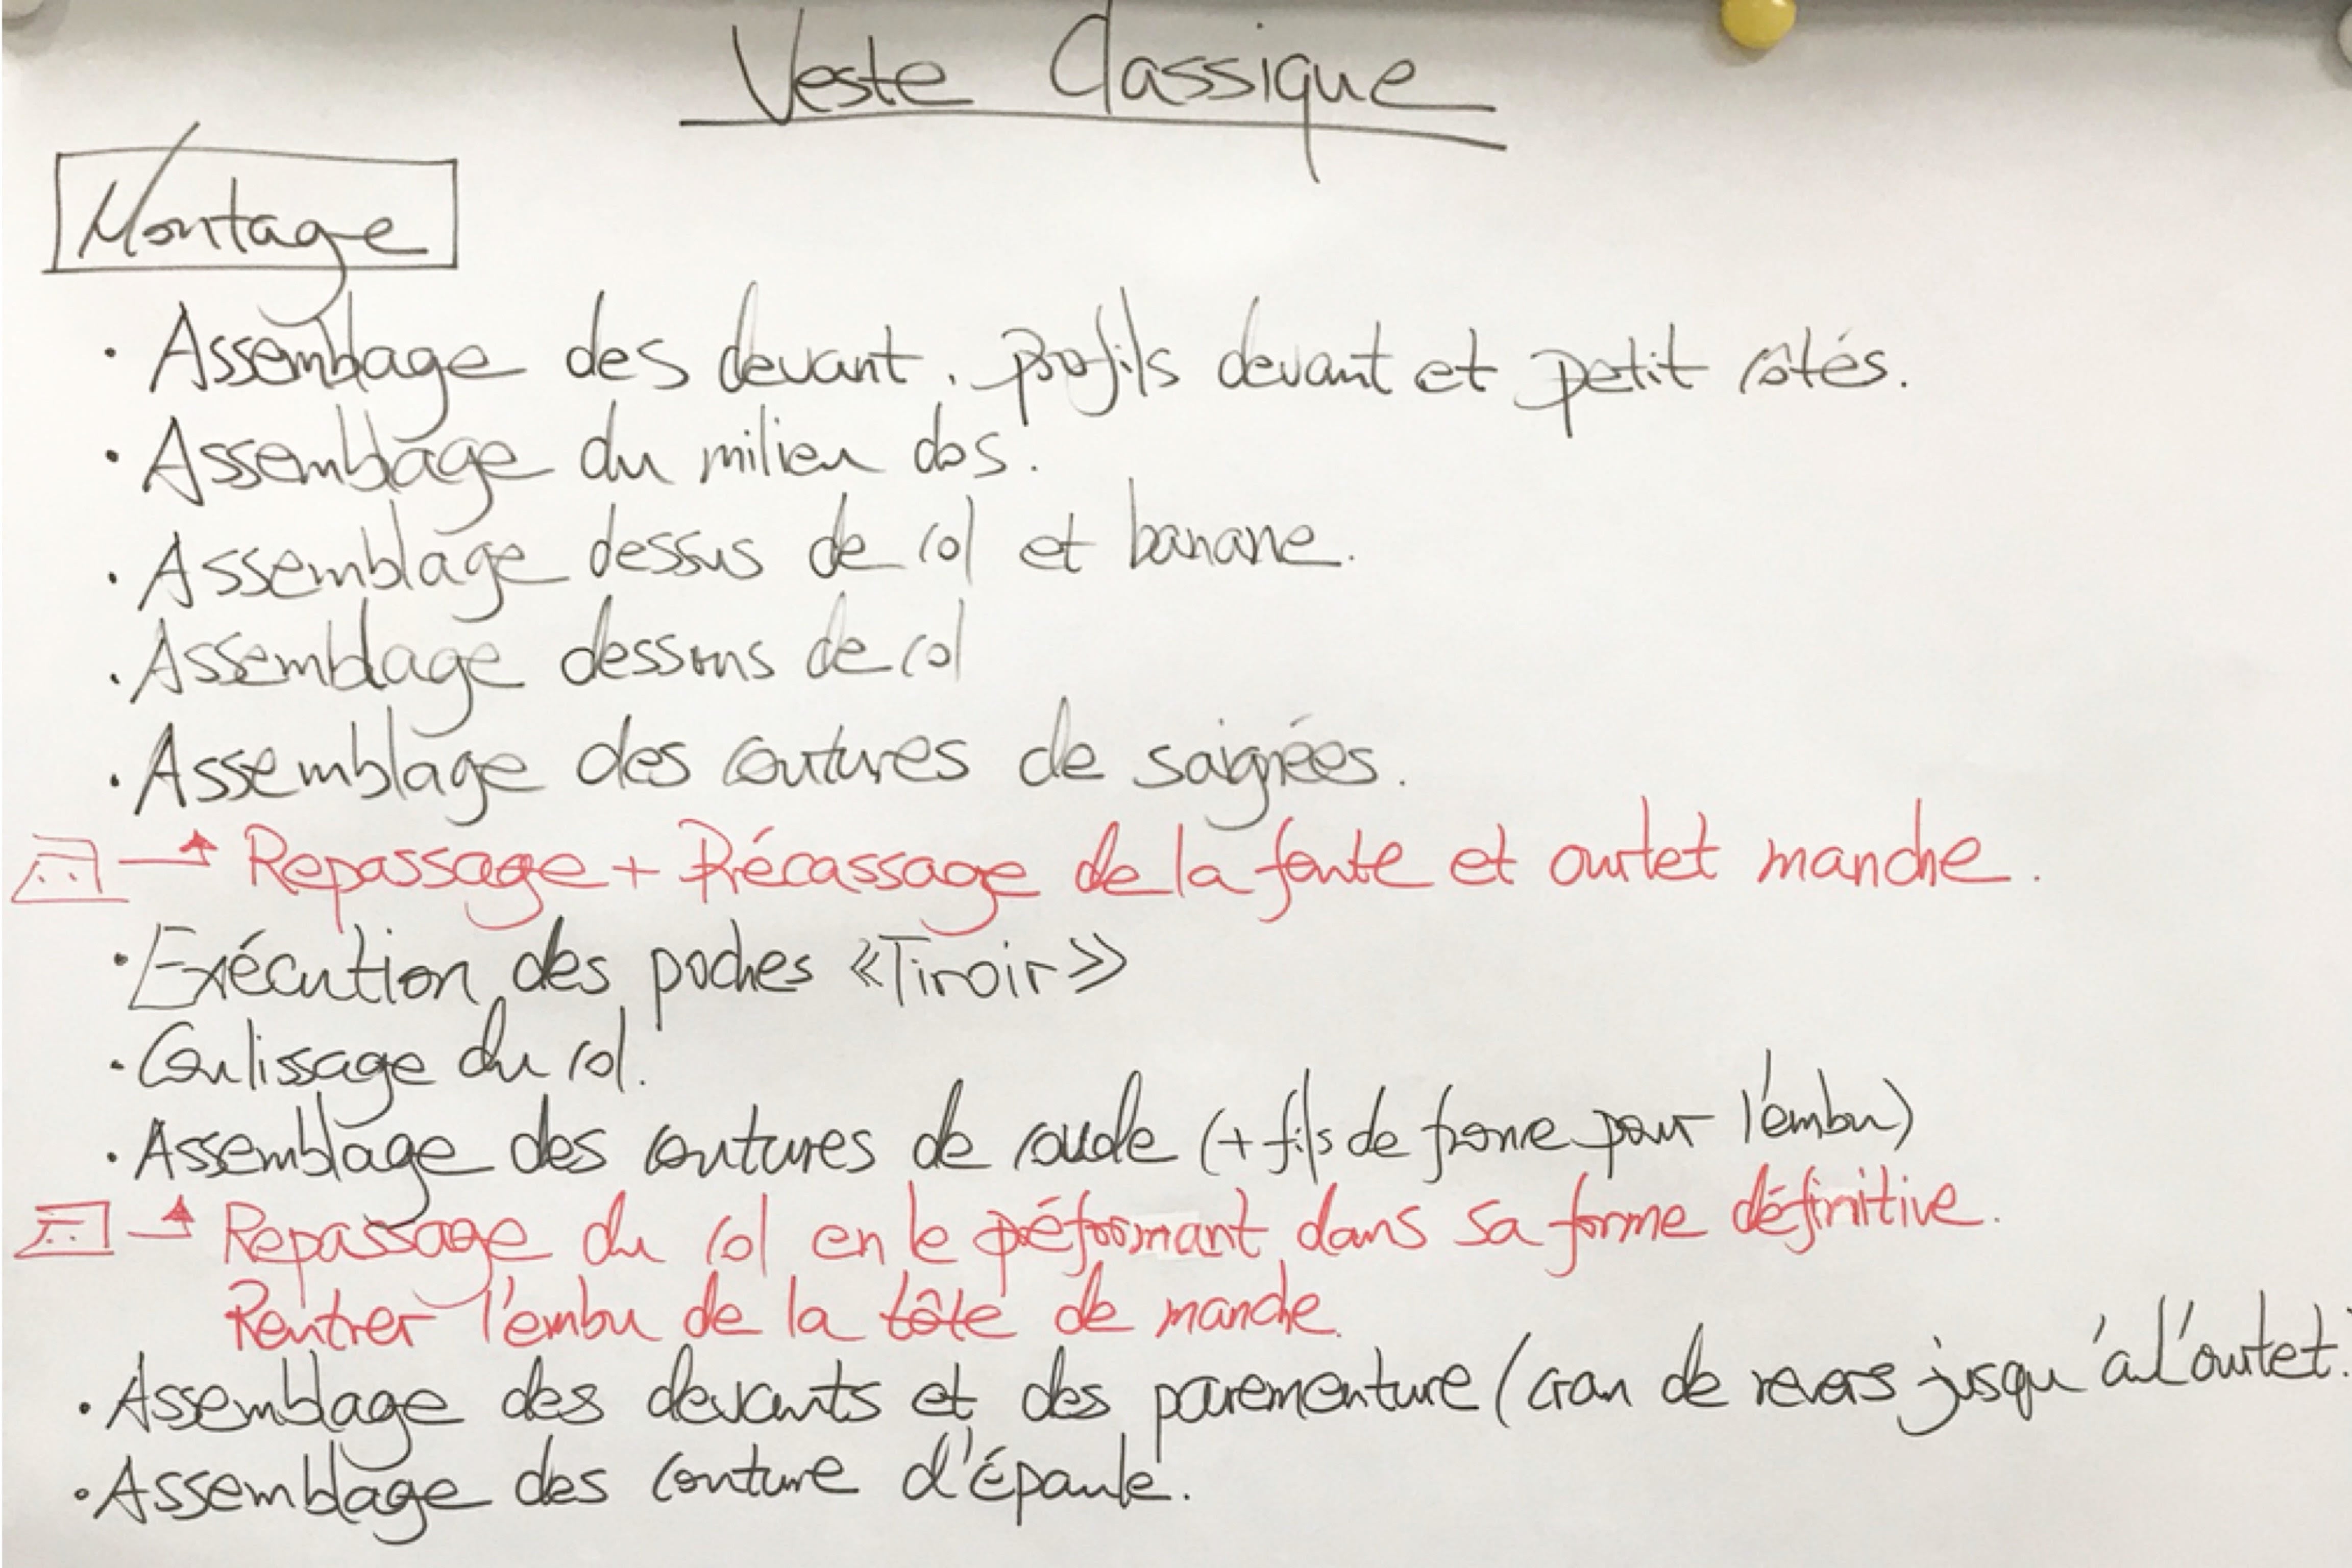 Veste Classique
Montage
· Assemblage des devant, profils devant et petit côtés.
· Assemblage du milieu dos.
· Assemblage dessus de col et banane.
· Assemblage dessous de col
· Assemblage des coutures de saignées.
Repassage + Précassage de la fente et ourlet manche.
· Exécution des poches «Tiroir»
· Coulissage du col.
· Assemblage des coutures de coude (+ fils de fronce pour l'embu)
Repassage du col en le préformant dans sa forme définitive.
Rentrer l'embu de la tête de manche.
· Assemblage des devants et des parementure (cran de revers jusqu'à l'ourlet.
· Assemblage des couture d'épaule.